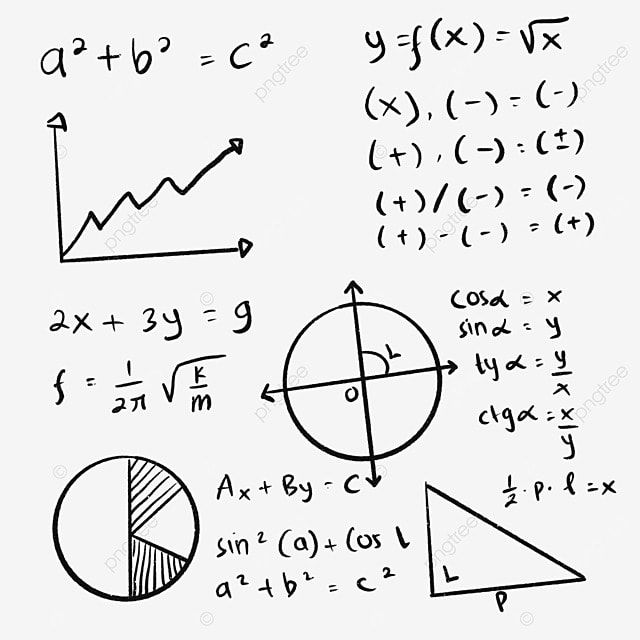 a² + b² = c²
y = f(x) = √x
(x), (-) = (-)
(+), (-) = (±)
(+) / (-) = (-)
(+) - (-) = (+)
2x + 3y = 9
f = 1/2π √k/m
O L
cosα = x
sinα = y
tyα = y/x
ctgα = x/y
Ax + By = C
sin² (a) + Cos L
a² + b² = c²
1/2 · p · l = x
L
P
pngtree